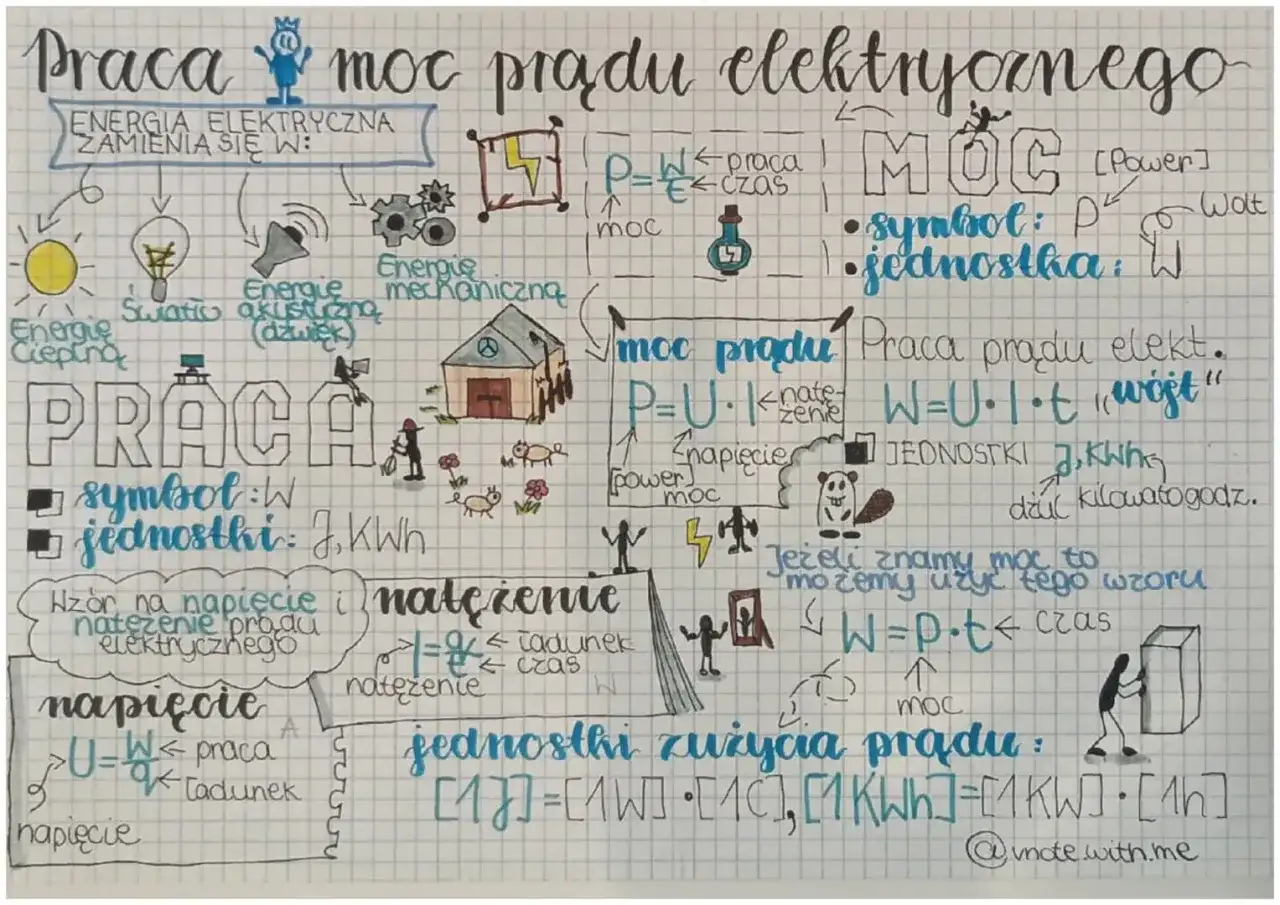 Praca i moc prądu elektrycznego
ENERGIA ELEKTRYCZNA
ZAMIENIA SIĘ W:
Energię
Cieplną
Światło
Energię
akustyczną
(dźwięk)
Energię
mechaniczną
P=W/t
praca
czas
moc
MOC
[Power]
symbol: P
jednostka: W
Wolt
PRACA
symbol: W
jednostki: J, KWh
moc prądu
P=U·I
natę-
żenie
napięcie
[power]
moc
Praca prądu elekt.
W=U·I·t „wójt"
JEDNOSTKI J, KWh
dżul kilowatogodz.
Jeżeli znamy moc to
możemy użyć tego wzoru
W=P·t
czas
moc
Wzór na napięcie i
natężenie prądu
elektrycznego
natężenie
I=q/t
ładunek
czas
natężenie
W
napięcie
A
U=W/q
praca
ładunek
napięcie
jednostki zużycia prądu:
[1J]=[1W]·[1C], [1KWh]=[1KW]·[1h]
@vnote.with.me